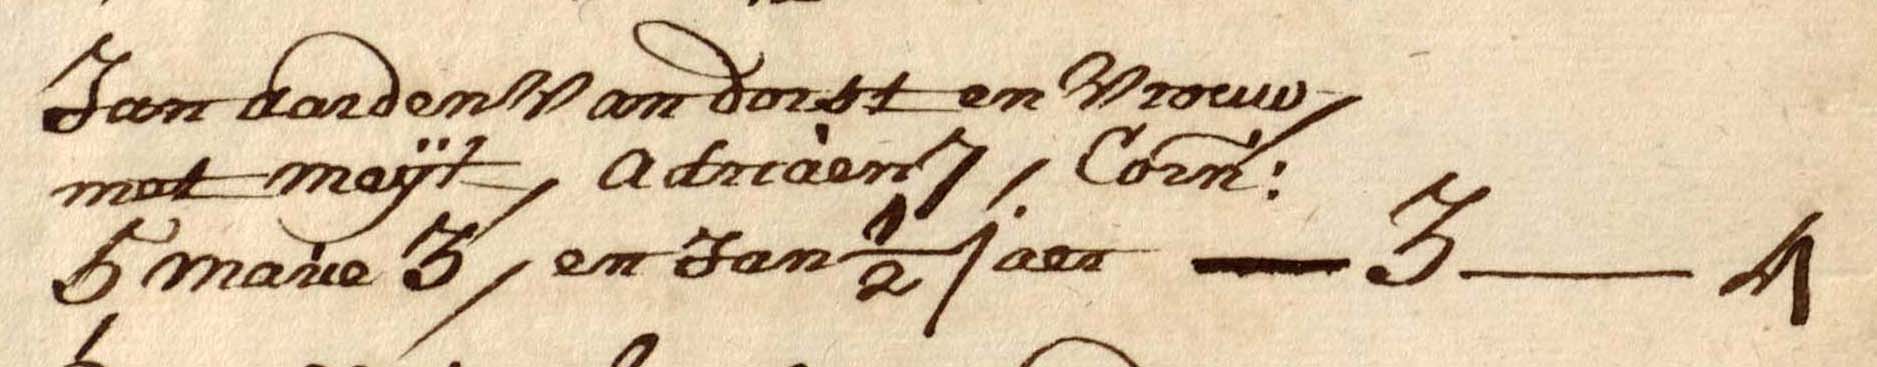 Jan aarden Van dorst en Vrouw,
met meÿt, Adriaen 7, Corn:
5 Marie 3, en Jan 1/2 jaer — 3 — 4